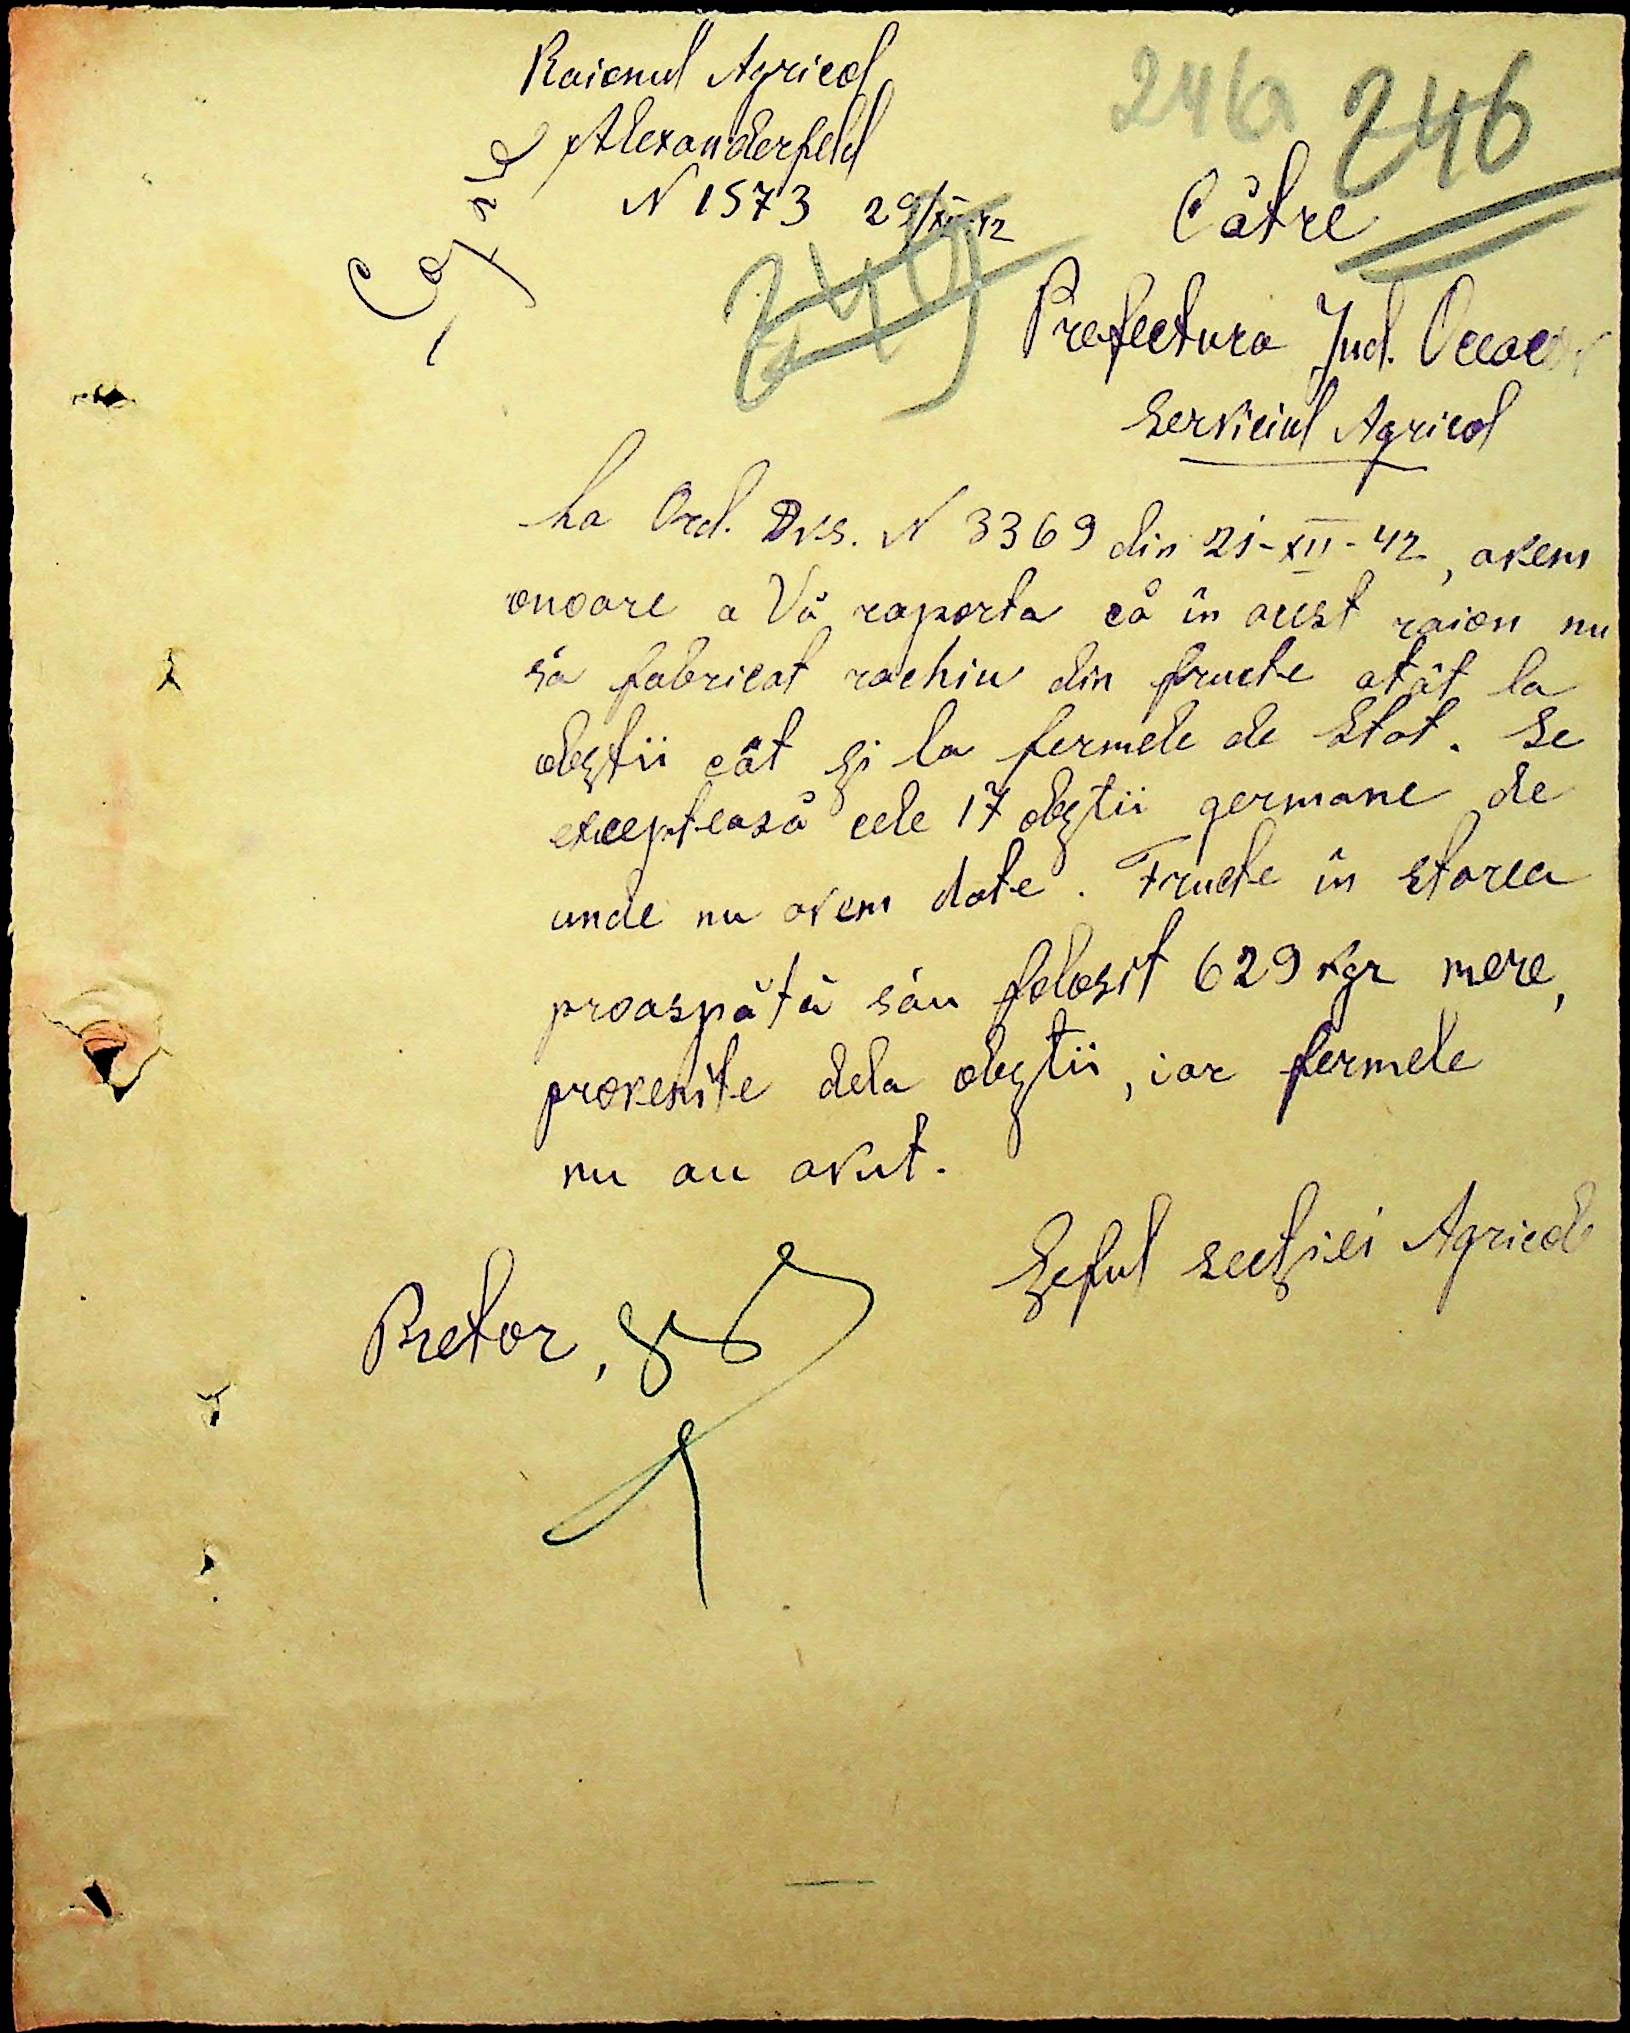 Raionul Agricol
Alexanderfeld
N 1573 29/XII-42
Copie
246a 246
Către
Prefectura Jud. Oceacov
Serviciul Agricol
La Ord. Dvs. N 3369 din 21-XII-42, avem
onoare a Vă raporta că în acest raion nu
sa fabricat rachiu din fructe atât la
obștii cât și la fermele de Stat. Se
exceptează cele 17 obștii germane de
unde nu avem date. Fructe în starea
proaspătă sáu folosit 629 kgr mere,
provenite dela obștii, iar fermele
nu au avut.
Șeful secției Agricole
Pretor,